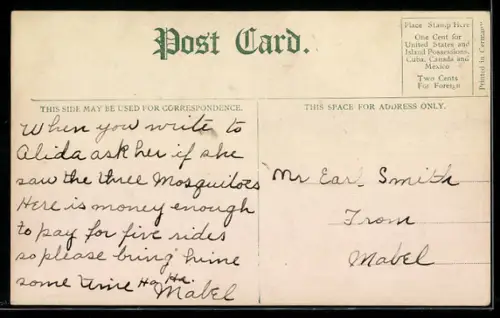 Post Card.
Place Stamp Here
One Cent for
United States and
Island Possessions,
Cuba, Canada and
Mexico
Two Cents
For Foreign
Printed in Germany
THIS SIDE MAY BE USED FOR CORRESPONDENCE.
When you write to
Alida ask her if she
saw the three Mosquitoes
Here is money enough
to pay for five rides
so please bring hime
some time Ha Ha.
Mabel
THIS SPACE FOR ADDRESS ONLY.
Mr Earl Smith
From
Mabel